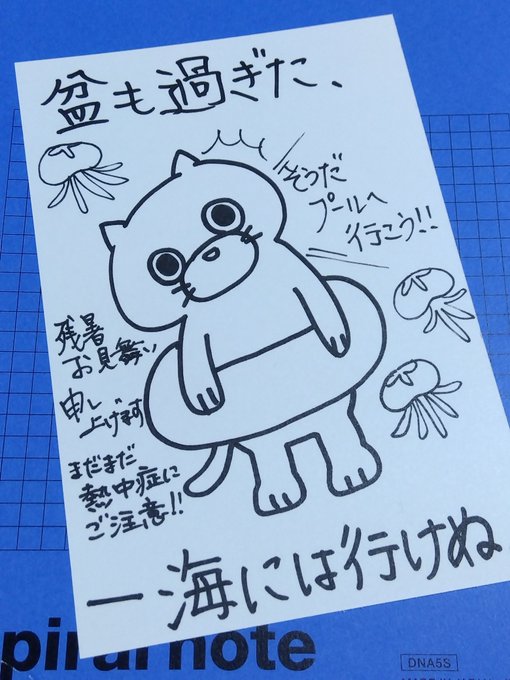 盆も過ぎた、
そうだ
プールへ
行こう!!
残暑
お見舞い
申し
上げます
まだまだ
熱中症に
ご注意!!
一海には行けぬ
piral note
DNA5S